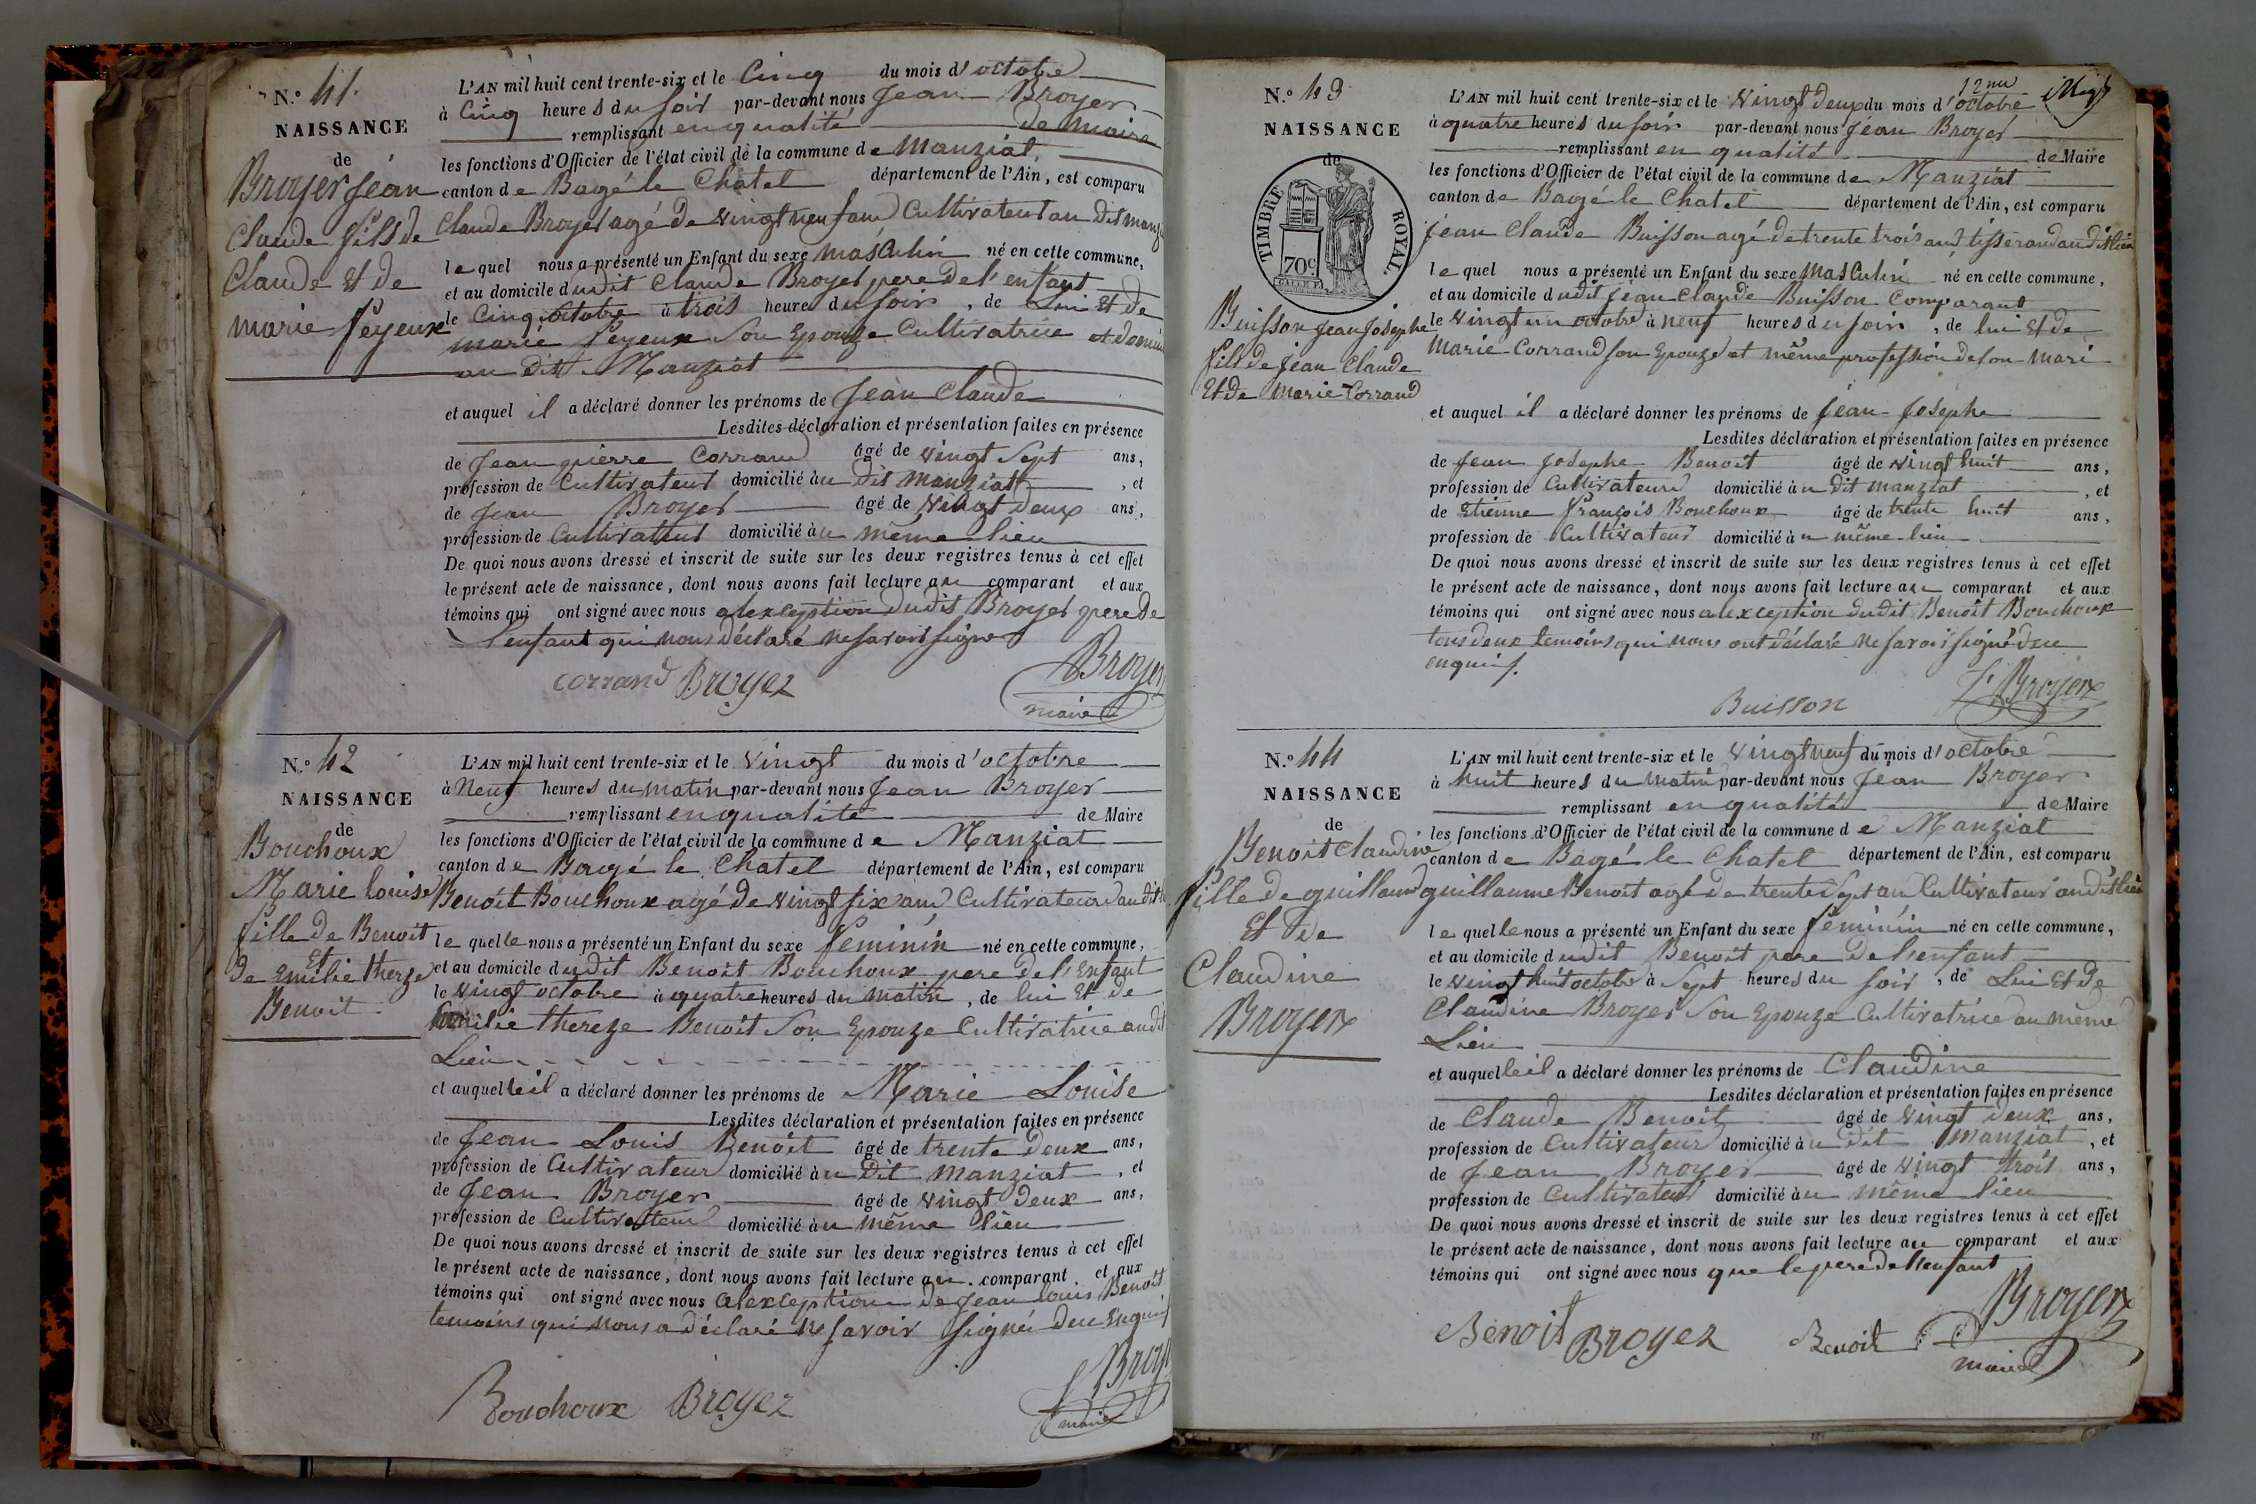 N.° 41.
NAISSANCE
de
Broyer Jean
Claude fils de
Claude Et de
marie feyeux
L'AN mil huit cent trente-six et le Cinq du mois d'octobre
à Cinq heures du soir par-devant nous Jean Broyer
remplissant en qualité de maire
les fonctions d'Officier de l'état civil de la commune de Manziat,
canton de Bagé le Chatel département de l'Ain, est comparu
Claude Broyer agé de vingt neuf ans Cultivateur au dit
lequel nous a présenté un Enfant du sexe masculin né en cette commune,
et au domicile dudit Claude Broyer pere de l'enfant
le Cinq octobre à trois heures du soir, de Lui Et de
marie feyeux Son Epouze Cultivatrice et
au dit Manziat
et auquel il a déclaré donner les prénoms de Jean Claude
Lesdites déclaration et présentation faites en présence
de Jean pierre Corrand âgé de vingt Sept ans,
profession de Cultivateur domicilié au dit manziat, et
de Jean Broyer âgé de vingt deux ans,
profession de Cultivateur domicilié au même lieu
De quoi nous avons dressé et inscrit de suite sur les deux registres tenus à cet effet
le présent acte de naissance, dont nous avons fait lecture au comparant et aux
témoins qui ont signé avec nous alexception dudit Broyer pere de
l'enfant qui nous déclaré ne savoir signer
corrand Broyer Broyer
maire
N.° 42
NAISSANCE
de
Bouchoux
Marie Louise
fille de Benoit
Et
de Emilie thereze
Benoit
L'AN mil huit cent trente-six et le vingt du mois d'octobre
à Neuf heures du matin par-devant nous Jean Broyer
remplissant en qualité de Maire
les fonctions d'Officier de l'état civil de la commune de Manziat
canton de Bagé le Chatel département de l'Ain, est comparu
Benoit Bouchoux agé de vingt six ans Cultivateur au dit
lequel le nous a présenté un Enfant du sexe feminin né en cette commune,
et au domicile dudit Benoit Bouchoux pere de l'Enfant
le vingt octobre à quatre heures du matin, de lui Et de
Emilie thereze Benoit Son Epouze Cultivatrice au dit
Lieu
et auquelle il a déclaré donner les prénoms de Marie Louise
Lesdites déclaration et présentation faites en présence
de Jean Louis Benoit âgé de trente deux ans,
profession de Cultivateur domicilié au Dit manziat, et
de Jean Broyer âgé de vingt deux ans,
profession de Cultivateur domicilié au même lieu
De quoi nous avons dressé et inscrit de suite sur les deux registres tenus à cet effet
le présent acte de naissance, dont nous avons fait lecture au comparant et aux
témoins qui ont signé avec nous alexception de Jean louis Benoit
temoins qui nous a déclaré ne savoir signé deu Enquis
Bouchoux Broyer
maire
N.° 43
NAISSANCE
de
TIMBRE ROYAL.
70c.
Buisson Jean Josephe
fils de Jean Claude
Et de Marie Corrand
L'AN mil huit cent trente-six et le vingt deux du mois d'octobre
à quatre heures du soir par-devant nous Jean Broyer
remplissant en qualité de Maire
les fonctions d'Officier de l'état civil de la commune de Manziat
canton de Bagé le Chatel département de l'Ain, est comparu
Jean Claude Buisson agé de trente trois ans tisserand au dit lieu
lequel nous a présenté un Enfant du sexe masculin né en cette commune,
et au domicile dudit Jean Claude Buisson Comparant
le vingt un octobre à neuf heures du soir, de lui Et de
Marie Corrand son Epouze et même profession de son mari
et auquel il a déclaré donner les prénoms de Jean-Josephe
Lesdites déclaration et présentation faites en présence
de Jean Josephe Benoit âgé de vingt huit ans,
profession de Cultivateur domicilié au dit manziat, et
de Etienne françois Bouchoux âgé de trente huit ans,
profession de Cultivateur domicilié au même lieu
De quoi nous avons dressé et inscrit de suite sur les deux registres tenus à cet effet
le présent acte de naissance, dont nous avons fait lecture au comparant et aux
témoins qui ont signé avec nous alexception dudit Benoit Bouchoux
tous deux temoins qui nous ont déclaré ne savoir signé deu
enquis.
Buisson Broyer
N.° 44
NAISSANCE
de
Benoit Claudine
fille de guillaume
Et de
Claudine
Broyer
L'AN mil huit cent trente-six et le vingt neuf du mois d'octobre
à huit heures du matin par-devant nous Jean Broyer
remplissant en qualité de Maire
les fonctions d'Officier de l'état civil de la commune de Manziat
canton de Bagé le Chatel département de l'Ain, est comparu
guillaume Benoit agé de trente Sept ans Cultivateur au dit lieu
lequel le nous a présenté un Enfant du sexe feminin né en cette commune,
et au domicile dudit Benoit pere de l'enfant
le vingt huit octobre à Sept heures du soir, de Lui Et de
Claudine Broyer Son Epouze Cultivatrice au même
Lieu
et auquelle il a déclaré donner les prénoms de Claudine
Lesdites déclaration et présentation faites en présence
de Claude Benoit âgé de vingt deux ans,
profession de Cultivateur domicilié au dit manziat, et
de Jean Broyer âgé de vingt trois ans,
profession de Cultivateur domicilié au même lieu
De quoi nous avons dressé et inscrit de suite sur les deux registres tenus à cet effet
le présent acte de naissance, dont nous avons fait lecture au comparant et aux
témoins qui ont signé avec nous que le pere de l'enfant
Benoit Broyer Benoit Broyer
maire